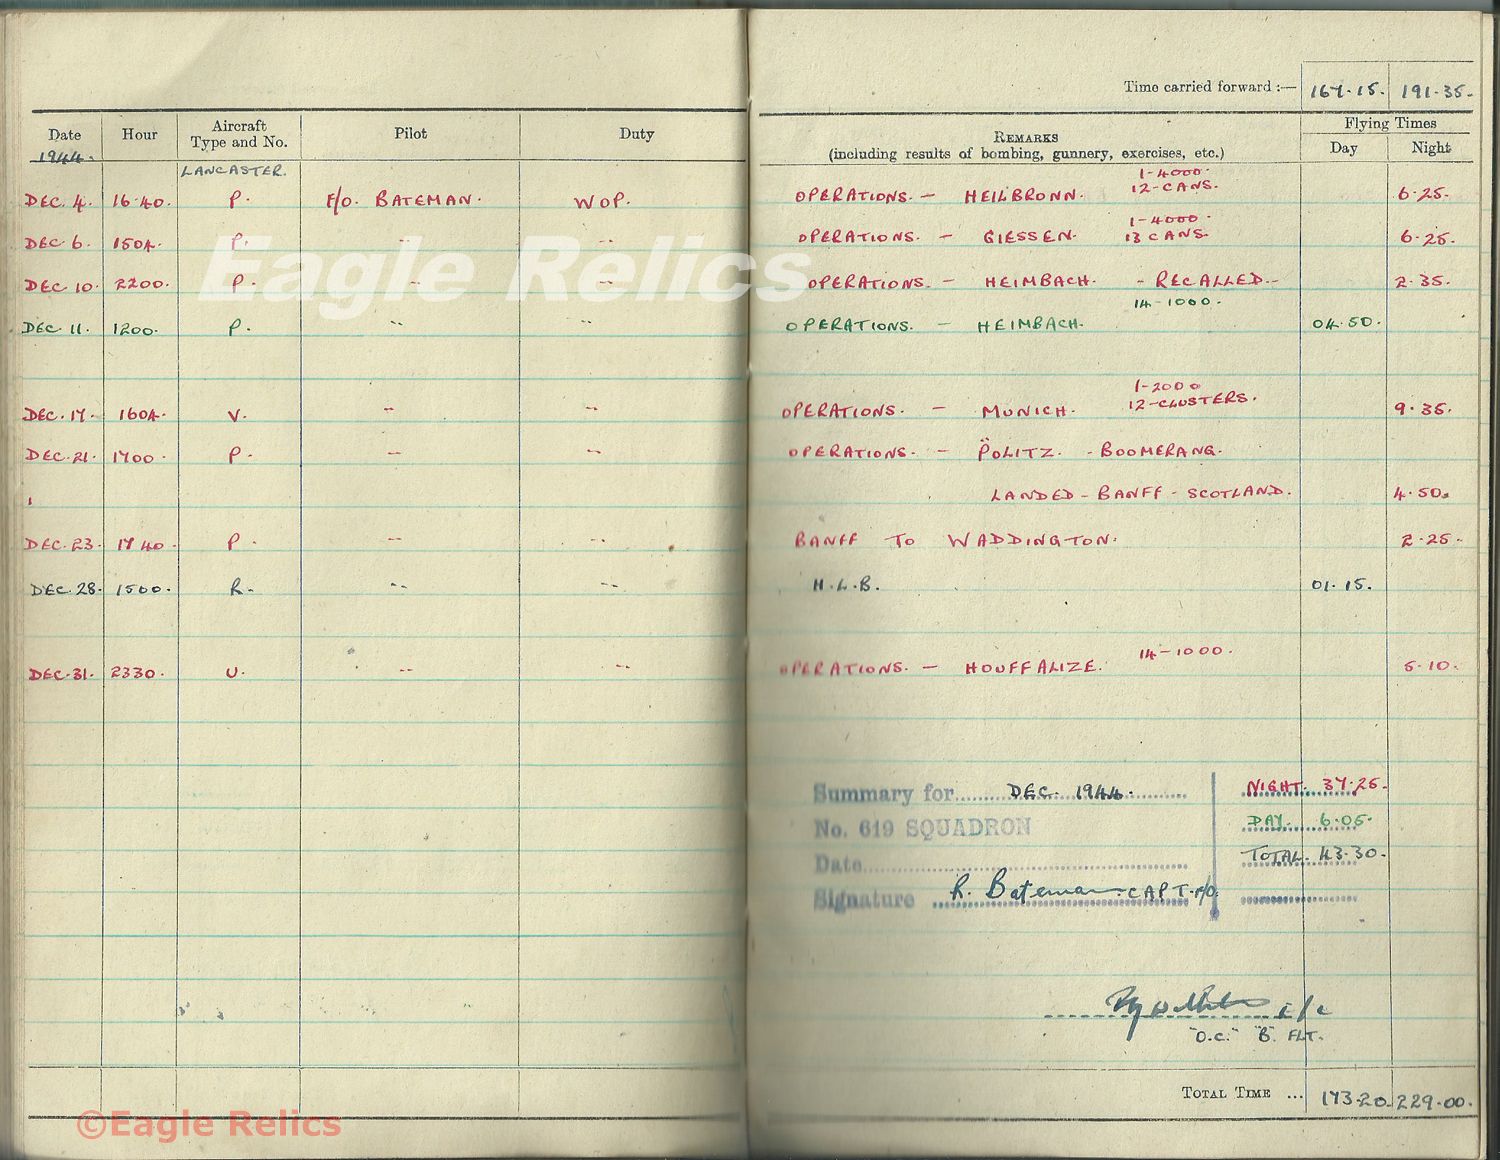 Time carried forward :— 167.15. 191.35.
Date Hour Aircraft Type and No. Pilot Duty REMARKS (including results of bombing, gunnery, exercises, etc.) Flying Times Day Night
1944.
LANCASTER.
1-4000.
DEC. 4. 16.40. P. F/O. BATEMAN. WOP. OPERATIONS. — HEILBRONN. 12-CANS. 6.25.
1-4000.
DEC. 6. 1504. P. -- -- OPERATIONS. — GIESSEN. 13 CANS. 6.25.
DEC. 10. 2200. P. -- -- OPERATIONS. — HEIMBACH. - RECALLED.- 2.35.
14-1000.
DEC. 11. 1200. P. -- -- OPERATIONS. — HEIMBACH. 04.50.
1-2000
DEC. 17. 1604. V. -- -- OPERATIONS. — MUNICH. 12-CLUSTERS. 9.35.
DEC. 21. 1700. P. -- -- OPERATIONS. — POLITZ. - BOOMERANG.
LANDED - BANFF - SCOTLAND. 4.50.
DEC. 23. 1740. P. -- -- BANFF TO WADDINGTON. 2.25.
DEC. 28. 1500. R. -- -- H.L.B. 01.15.
14-1000.
DEC. 31. 2330. U. -- -- OPERATIONS. — HOUFFALIZE. 5.10.
Summary for DEC. 1944. NIGHT. 37.25.
No. 619 SQUADRON DAY. 6.05.
Date TOTAL. 43.30.
Signature R. Bateman CAPT. F/O.
"O.C." "B" FLT.
TOTAL TIME ... 173.20 229.00.
Eagle Relics
©Eagle Relics